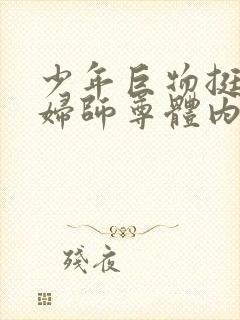 少年巨物挺
婦師尊體內
殘夜